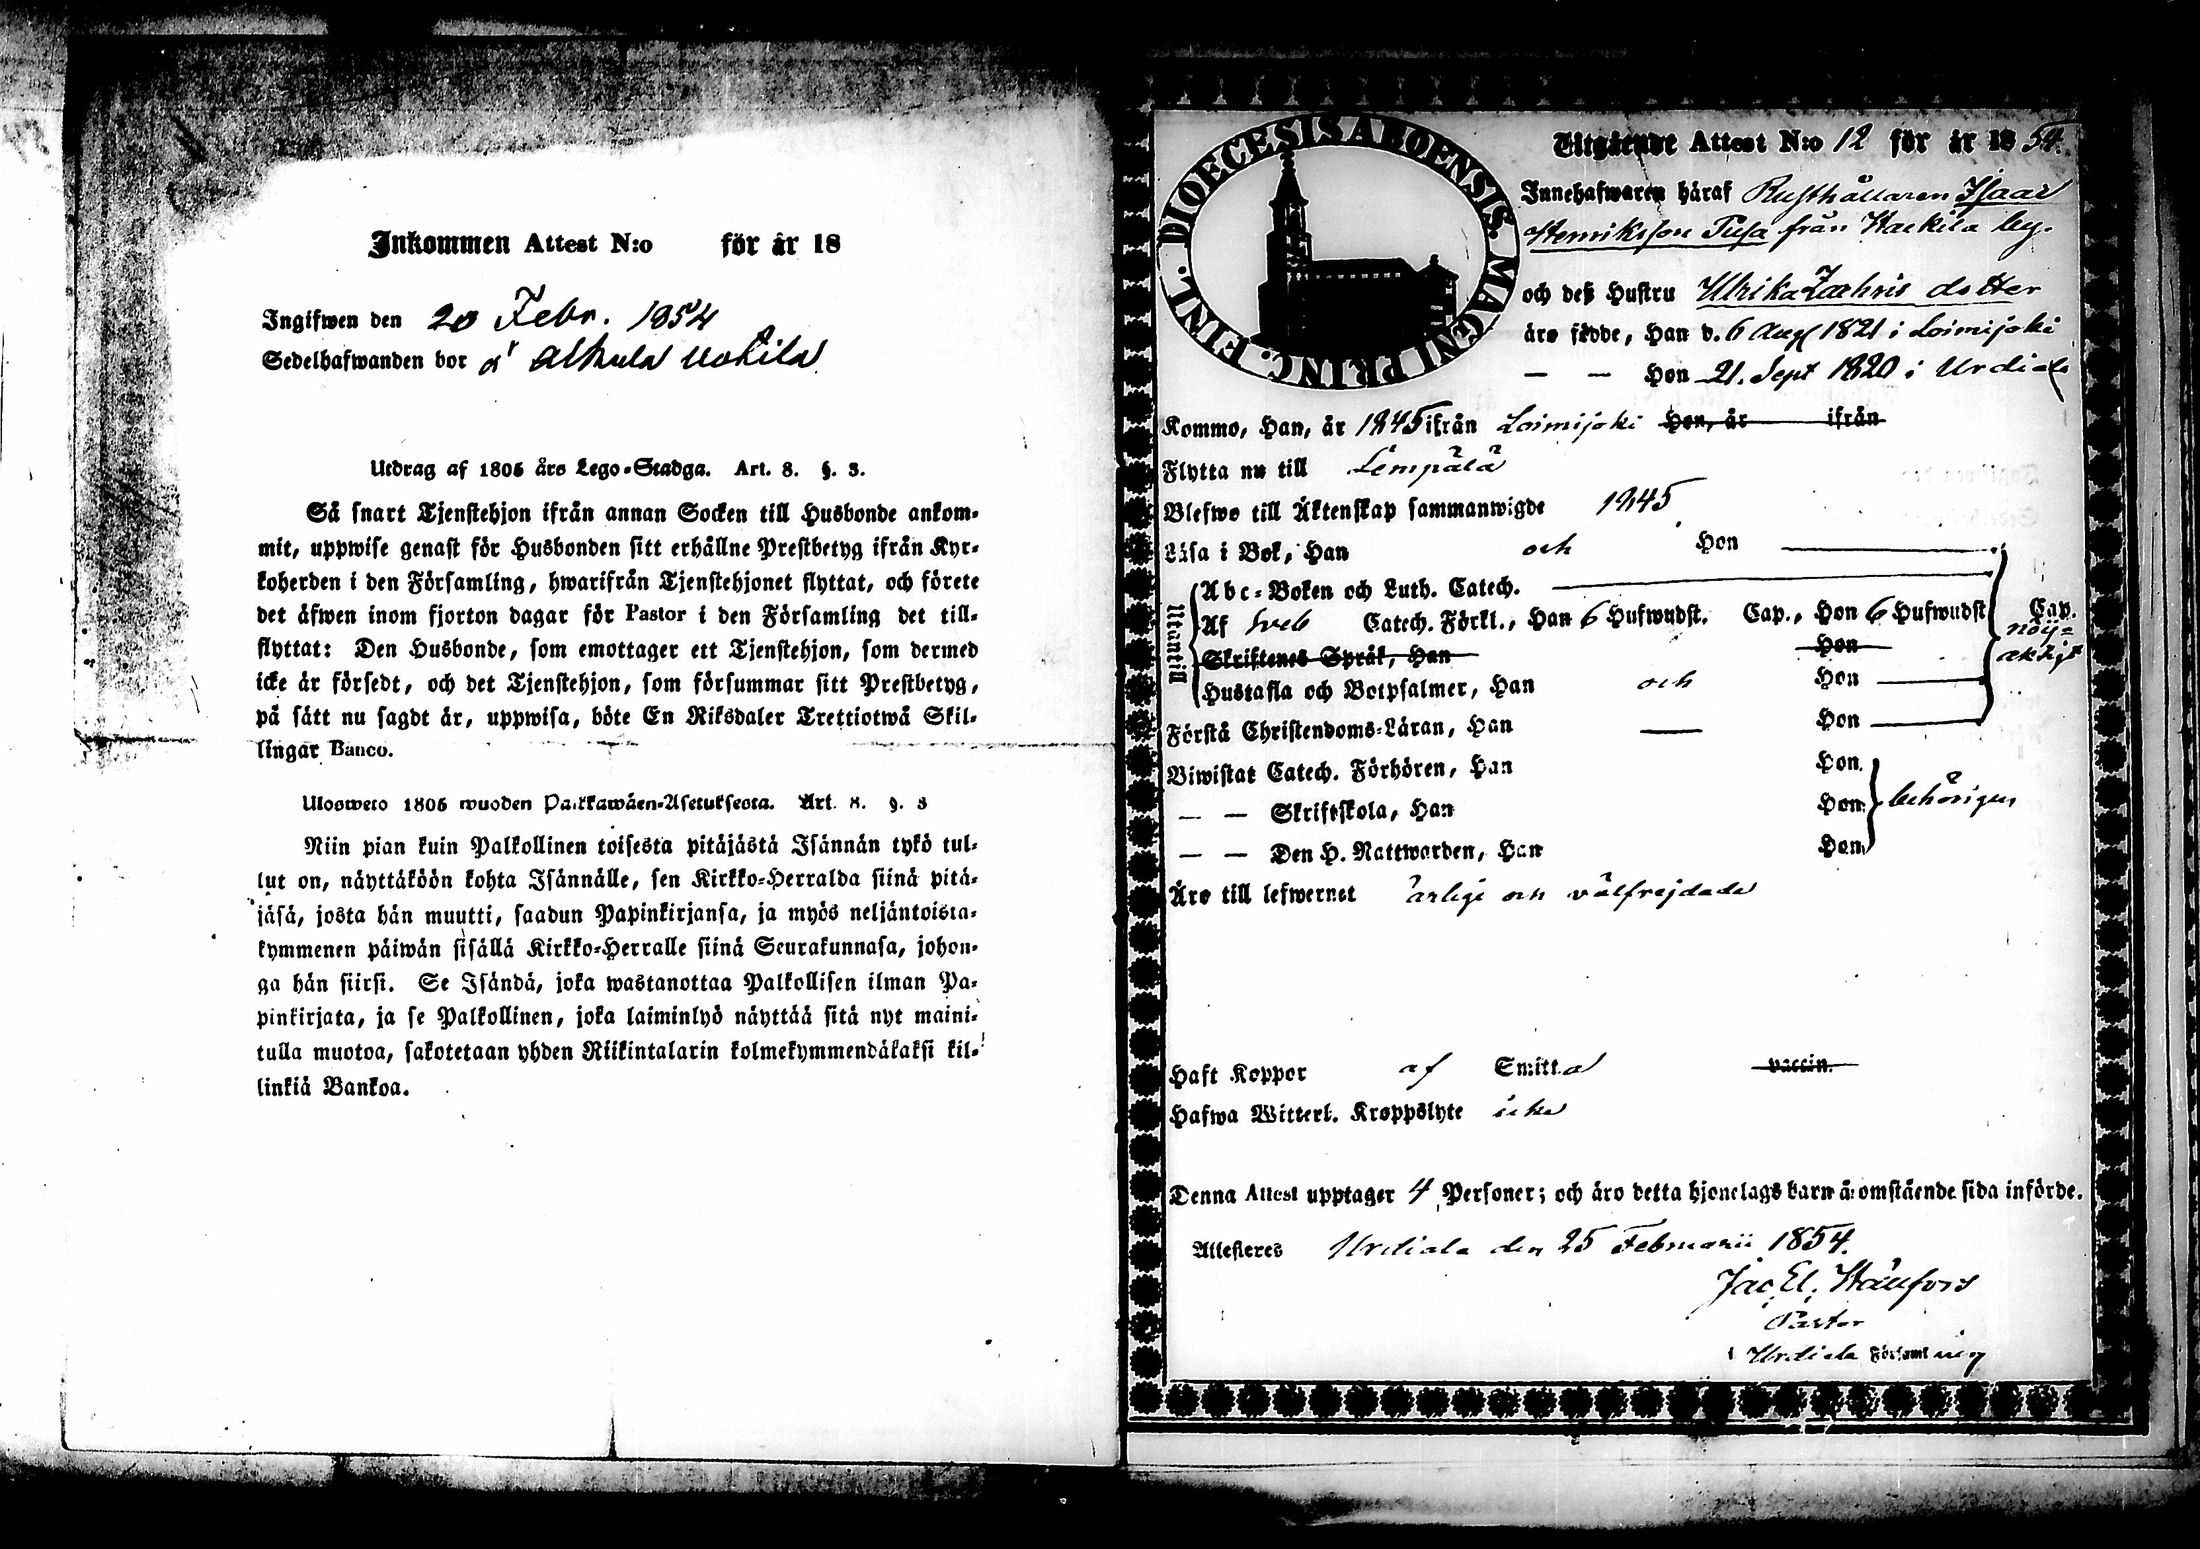 Inkommen Attest N:o för år 18
Ingifwen den 20 Febr. 1854
Sedelhafwanden bor å Alkula Uotila
Utdrag af 1805 års Lego-Stadga. Art. 8. §. 3.
Så snart Tjenstehjon ifrån annan Socken till Husbonde ankom-
mit, uppwise genast för Husbonden sitt erhållne Prestbetyg ifrån Kyr-
koherden i den Församling, hwarifrån Tjenstehjonet flyttat, och förete
det äfwen inom fjorton dagar för Pastor i den Församling det till-
flyttat: Den Husbonde, som emottager ett Tjenstehjon, som dermed
icke är försedt, och det Tjenstehjon, som försummar sitt Prestbetyg,
på sätt nu sagdt är, uppwisa, böte En Riksdaler Trettiotwå Skil-
lingar Banco.
Ulosweto 1805 wuoden Palkkawäen-Asetuksesta. Art. 8. §. 3
Niin pian kuin Palkollinen toisesta pitäjästä Isännän tykö tul-
lut on, näyttäköön kohta Isännälle, sen Kirkko-Herralda siinä pitä-
jäsä, josta hän muutti, saadun Papinkirjansa, ja myös neljäntoista-
kymmenen päiwän sisällä Kirkko-Herralle siinä Seurakunnasa, johon-
ga hän siirsi. Se Isändä, joka wastanottaa Palkollisen ilman Pa-
pinkirjata, ja se Palkollinen, joka laiminlyö näyttää sitä nyt maini-
tulla muotoa, sakotetaan yhden Riikintalarin kolmekymmendäkaksi kil-
linkiä Bankoa.
DIOECESIS ABOENSIS. MAGNI PRINC. FINL.
Utgående Attest N:o 12 för år 1854.
Innehafwaren häraf Rusthållaren Isaac
Henriksson Tusa från Hakkila by.
och deß Hustru Ulrika Zachris dotter
äro födde, Han d. 6 Aug 1821 i Loimijoki
— — Hon 21. Sept 1820 i Urdiala
Kommo, Han, år 1845 ifrån Loimijoki Hon, år ifrån
Flytta nu till Lempälä
Blefwo till Äktenskap sammanwigde 1845
Läsa i Bok, Han och Hon
Utantill
Abc-Boken och Luth. Catech.
Af Sveb Catech. Förkl., Han 6 Hufwudst. Cap., Hon 6 Hufwudst Cap.
nöij-
aktigt
Skriftenes Språk, Han Hon
Hustafla och Botpsalmer, Han och Hon
Förstå Christendoms-Läran, Han — Hon
Biwistat Catech. Förhören, Han Hon
— — Skriftskola, Han Hon behörigen
— — Den H. Nattwarden, Han Hon
Äro till lefwernet ärlige och välfrejdade
Haft Koppor af Smitta vaccin.
Hafwa Witterl. Kroppslyte icke
Denna Attest upptager 4 Personer; och äro detta hjonelags barn å omstående sida införde.
Attesteres Urdiala den 25 Februarii 1854.
Jac. El.
Pastor
i Urdiala Församling